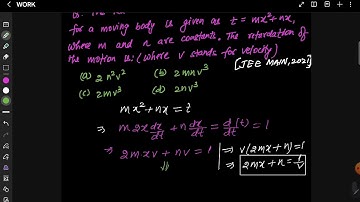 for a moving body is given as t = mx²+nx,
where m and n are constants. The retardation of
the motion is: (where v stands for velocity)
[JEE MAIN, 2021]
(a) 2n²v² (b) 2mnv³
(c) 2mv³ (d) 2nv³
mx²+nx = t
⇒ m2x dx/dt + n dx/dt = d/dt (t) = 1
⇒ 2mxv + nv = 1 ⇒ v(2mx+n)=1
⇓ ⇒ 2mx+n = 1/v